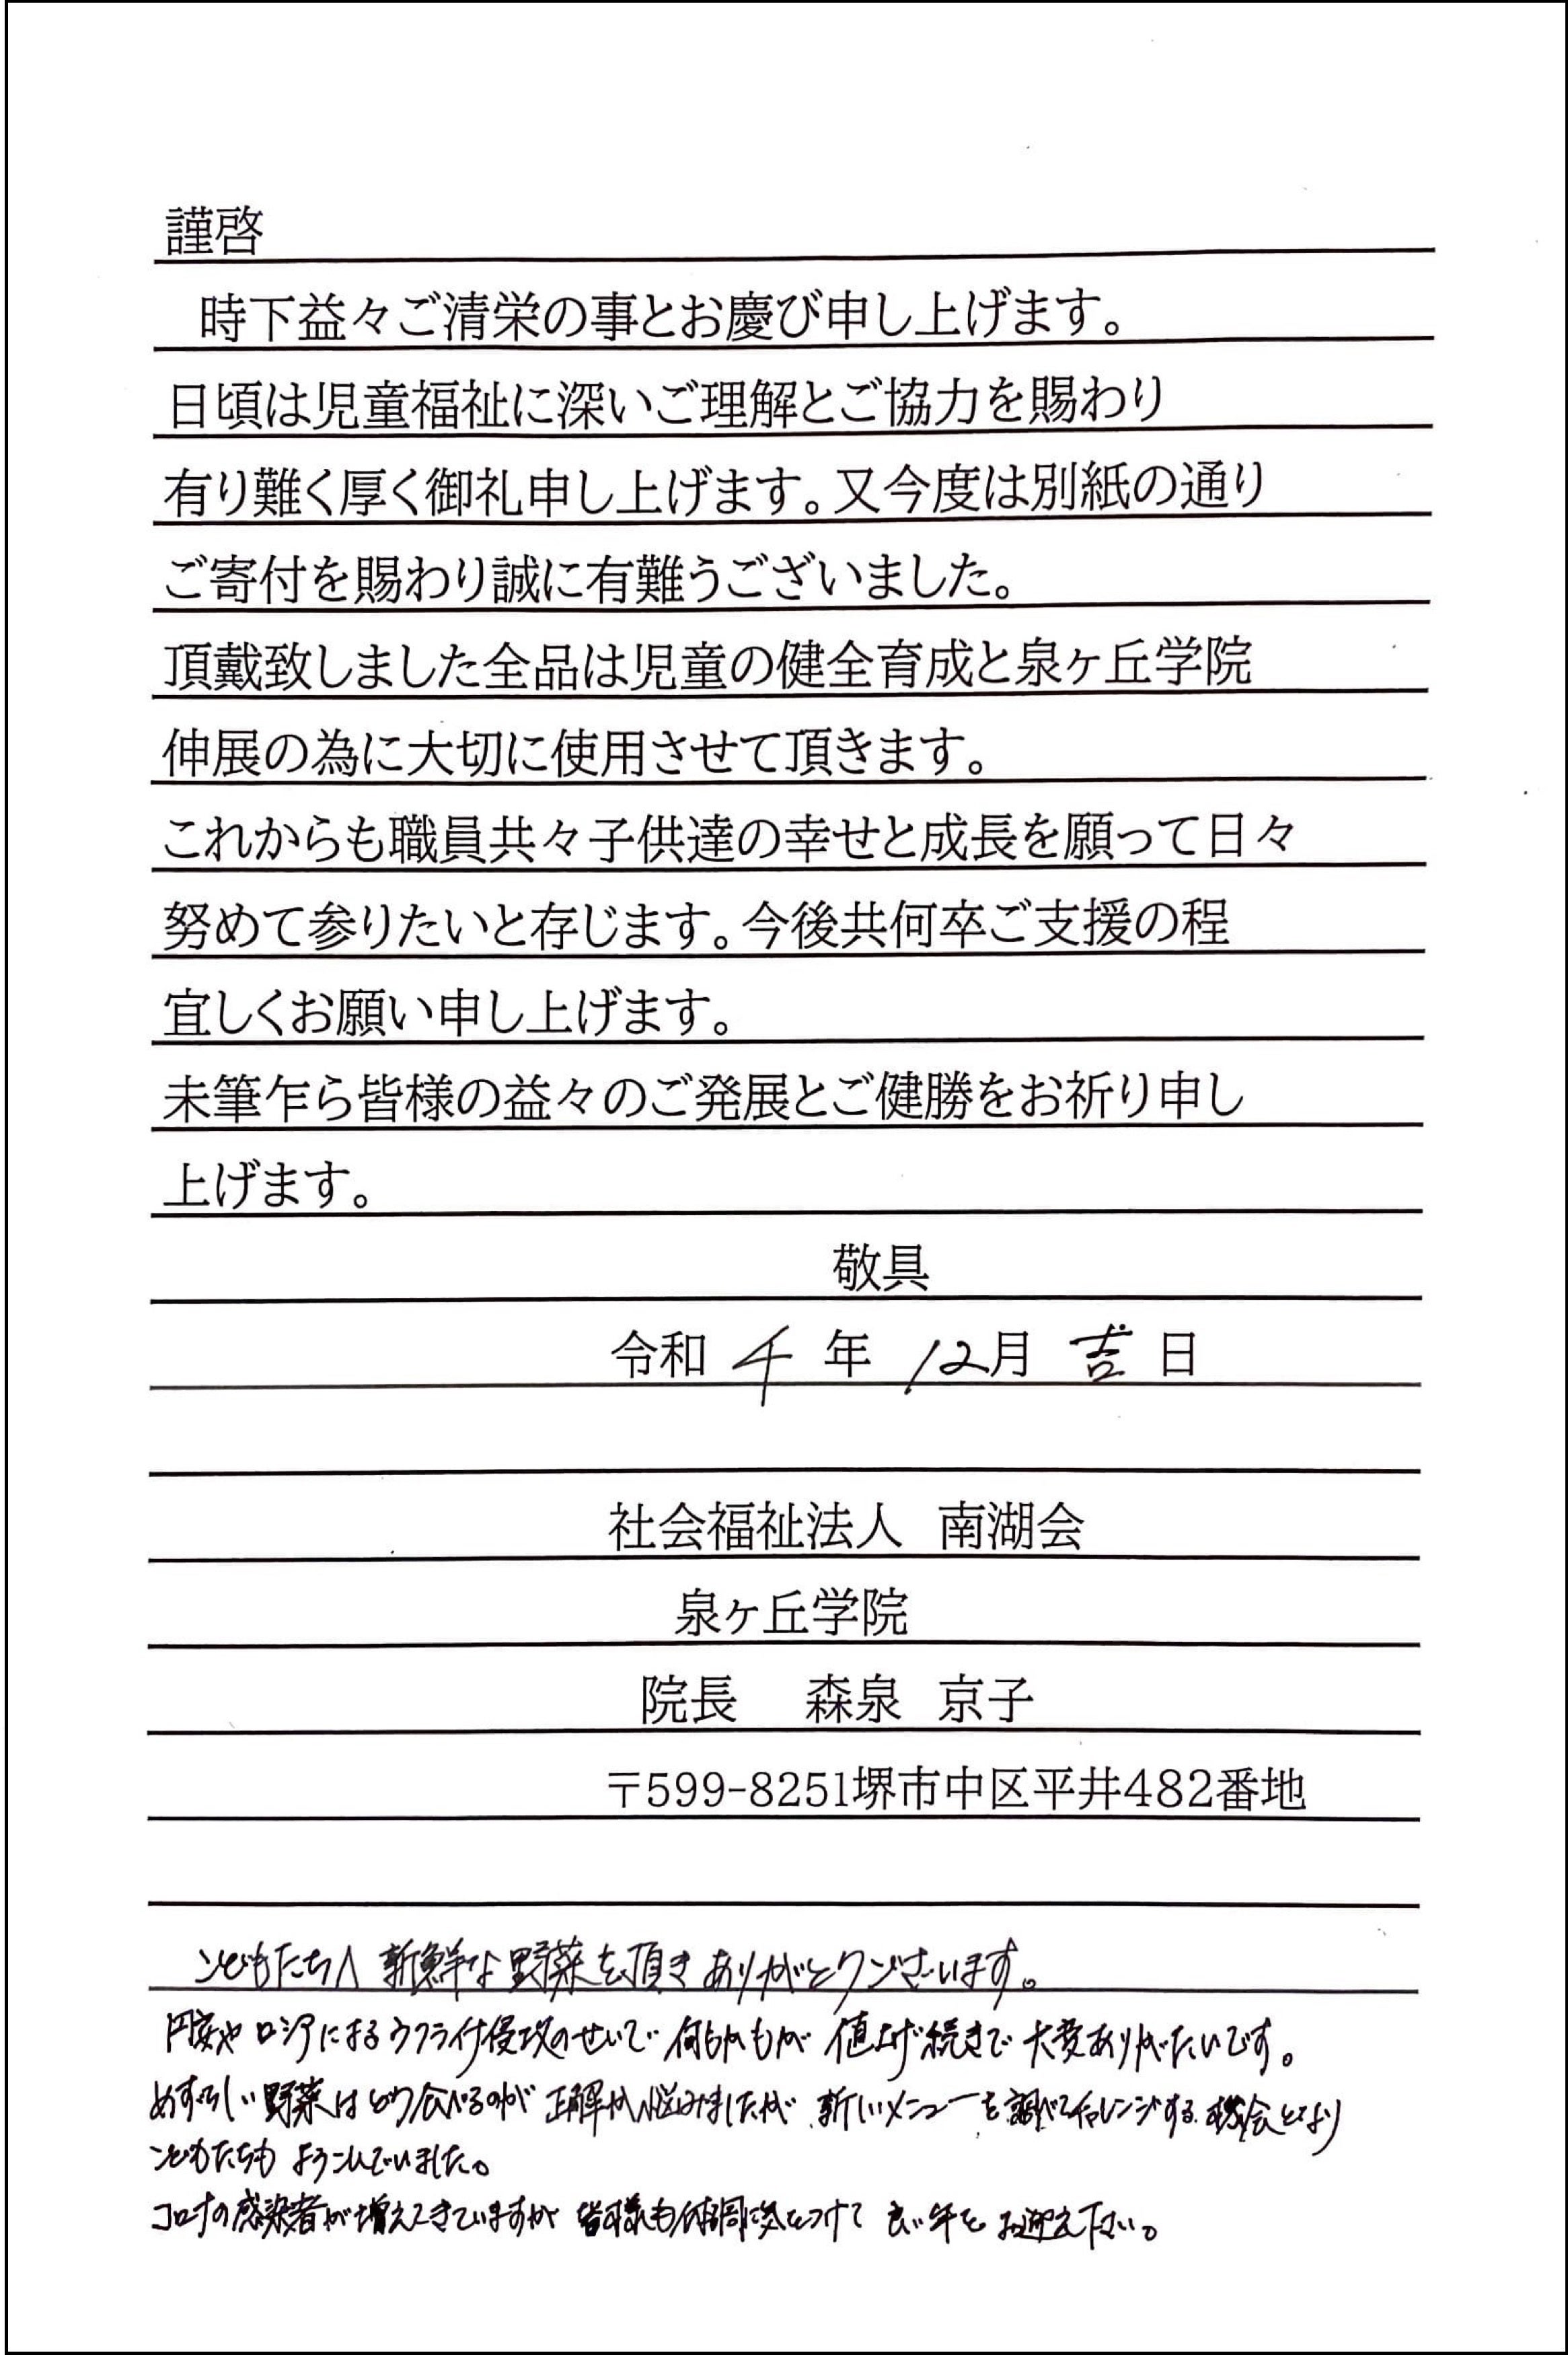 謹啓
時下益々ご清栄の事とお慶び申し上げます。
日頃は児童福祉に深いご理解とご協力を賜わり
有り難く厚く御礼申し上げます。又今度は別紙の通り
ご寄付を賜わり誠に有難うございました。
頂戴致しました全品は児童の健全育成と泉ヶ丘学院
伸展の為に大切に使用させて頂きます。
これからも職員共々子供達の幸せと成長を願って日々
努めて参りたいと存じます。今後共何卒ご支援の程
宜しくお願い申し上げます。
末筆乍ら皆様の益々のご発展とご健勝をお祈り申し
上げます。
敬具
令和 4 年 12月 吉 日
社会福祉法人 南湖会
泉ヶ丘学院
院長 森泉 京子
〒599-8251堺市中区平井482番地
こどもたちへ 新鮮な野菜を頂き ありがとうございます。
円安や ロシアによるウクライナ侵攻のせいで 何もかもが 値上げ続きで 大変ありがたいです。
めずらしい野菜は どう食べるのが 正解か悩みましたが 新しいメニューを 調べてチャレンジする 機会となり
こどもたちも よろこんでいました。
コロナの感染者が増えてきていますが 皆様も体調に気をつけて 良い年を お迎え下さい。